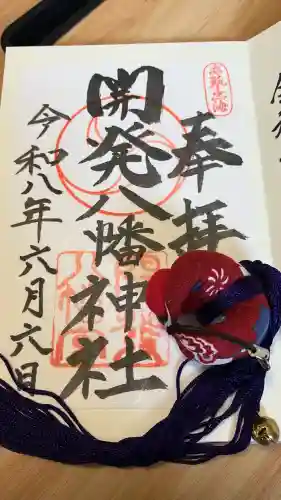 奉拝
開発八幡神社
令和八年六月六日